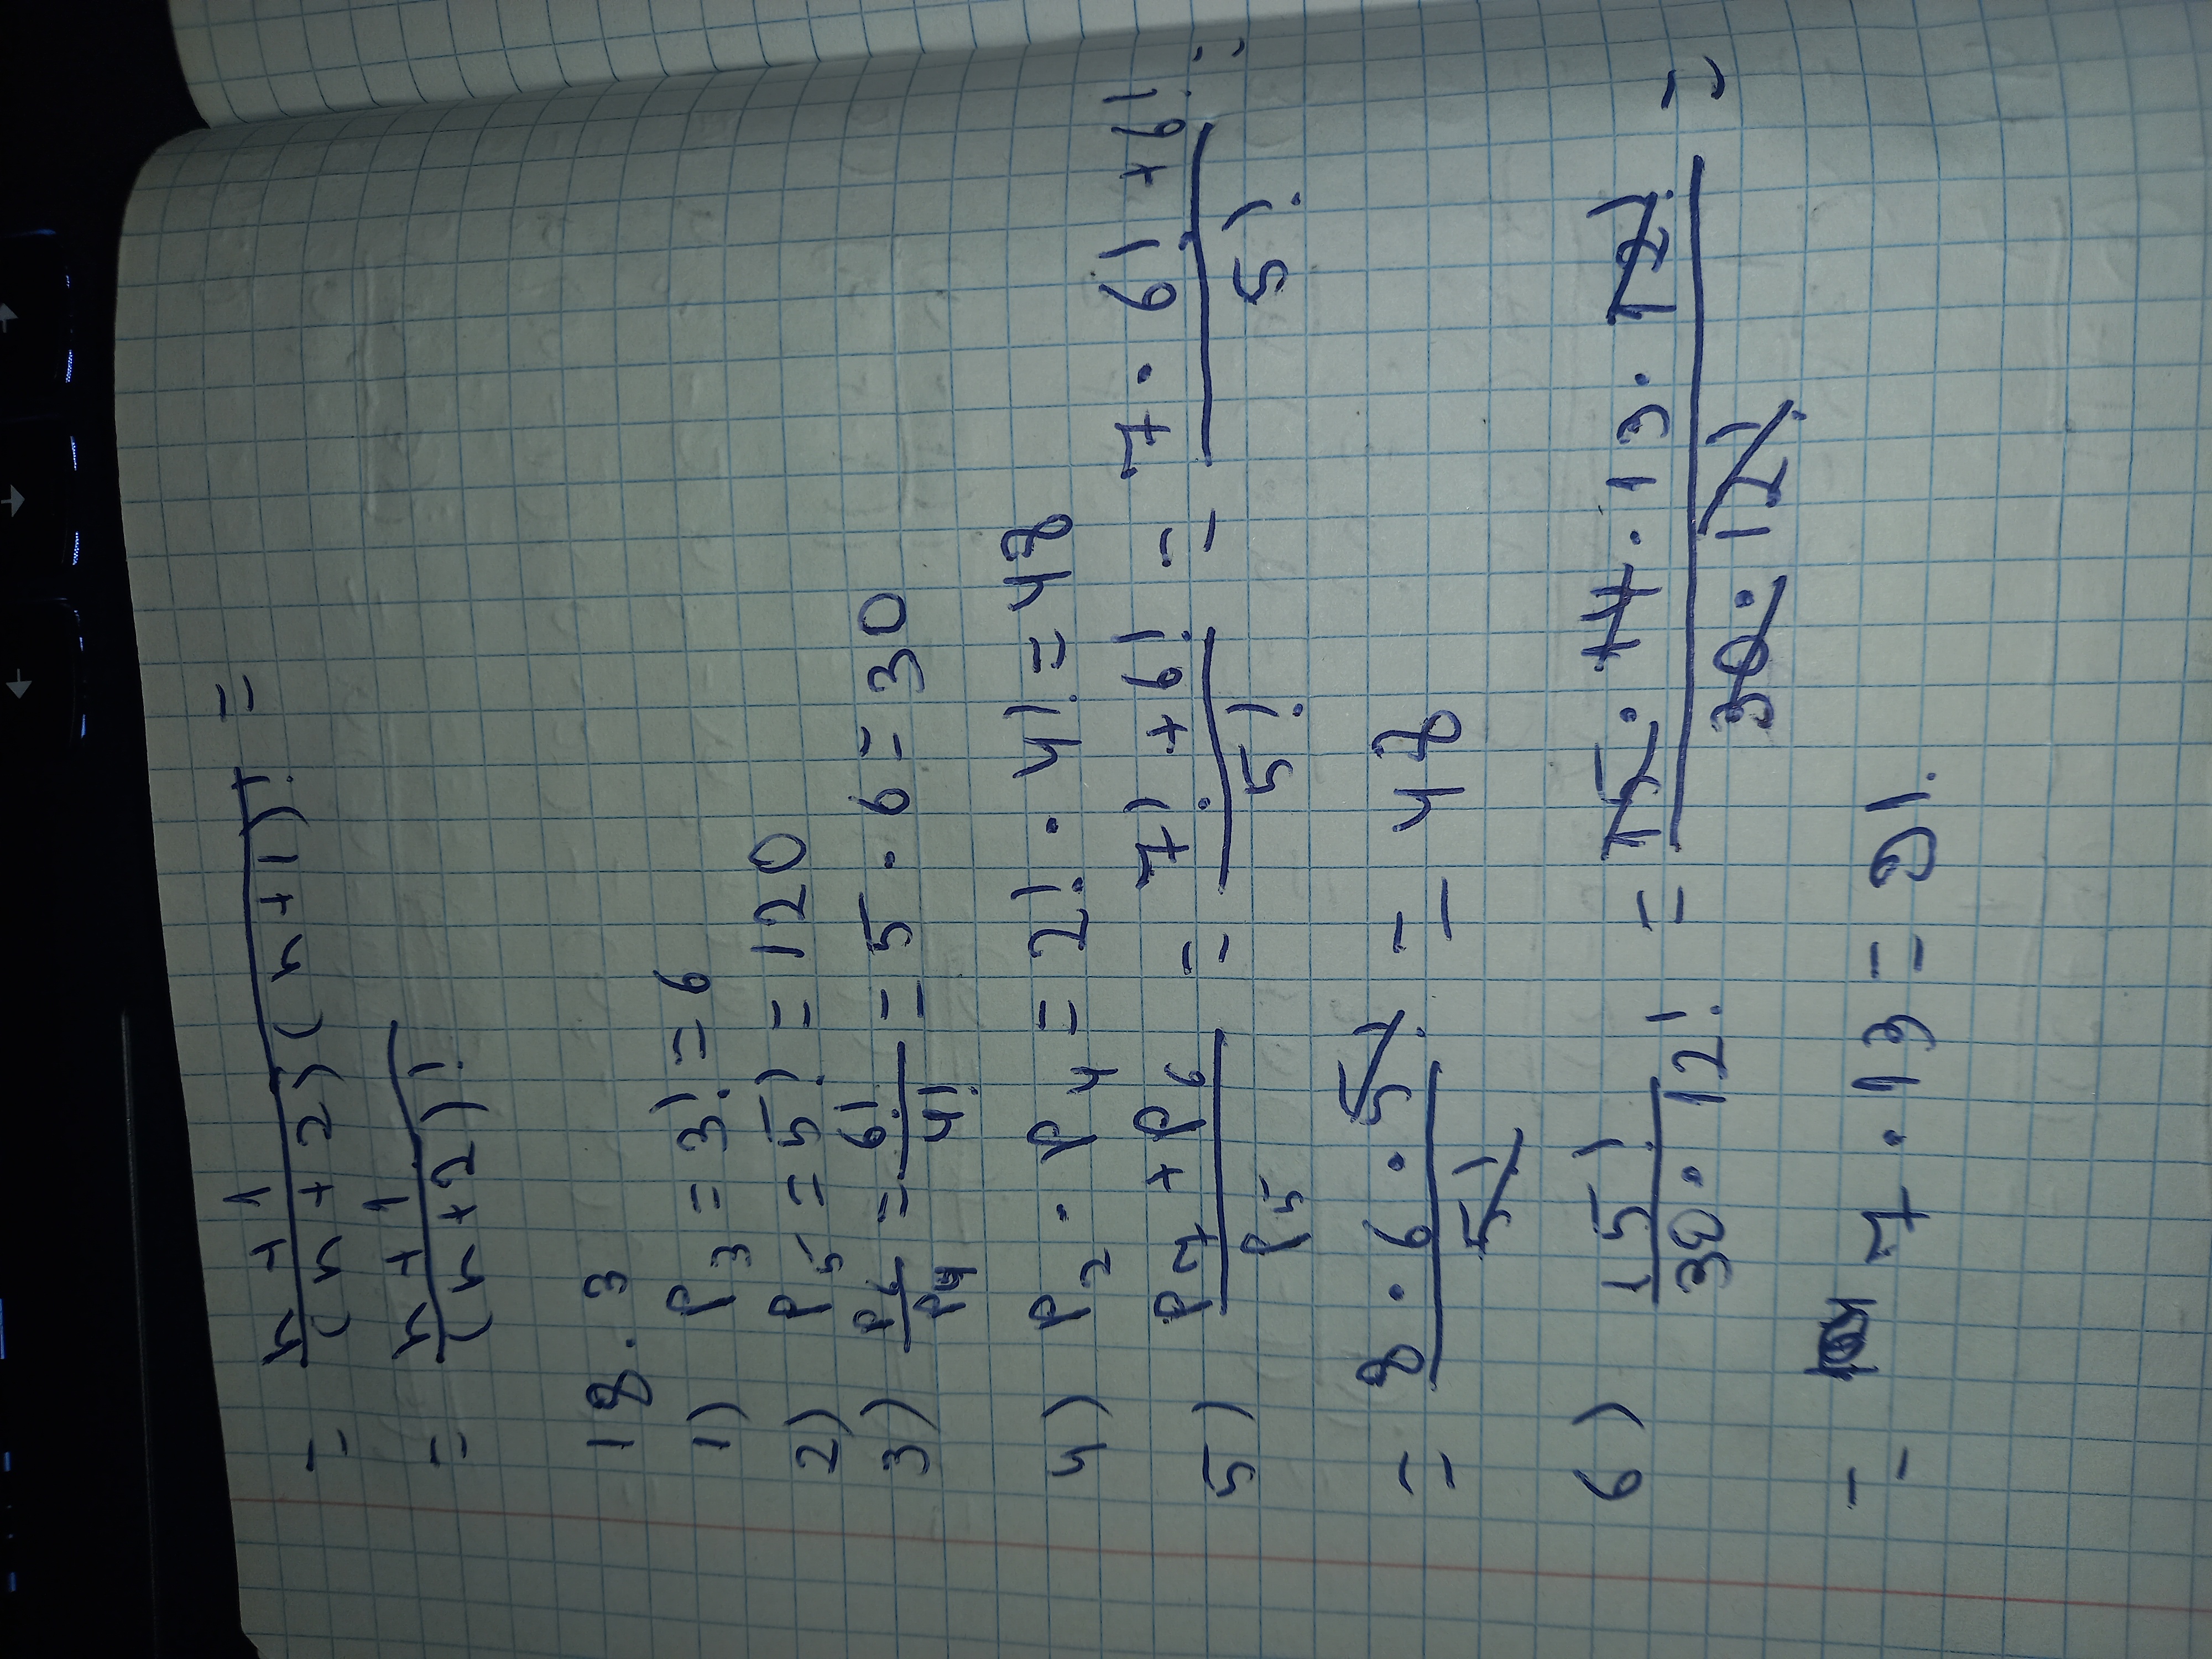 = (n + 1) / ((n + 2)(n + 1)!) =
= (n + 1) / (n + 2)!
18. 3
1) P₃ = 3! = 6
2) P₅ = 5! = 120
3) P₆ / P₄ = 6! / 4! = 5 · 6 = 30
4) P₂ · P₄ = 2! · 4! = 48
5) (P₇ + P₆) / P₅ = (7! + 6!) / 5! = (7 · 6! + 6!) / 5! =
= (8 · 6 · 5!) / 5! = 48
6) 15! / (30 · 12!) = (15 · 14 · 13 · 12!) / (30 · 12!) =
= 7 · 13 = 91.